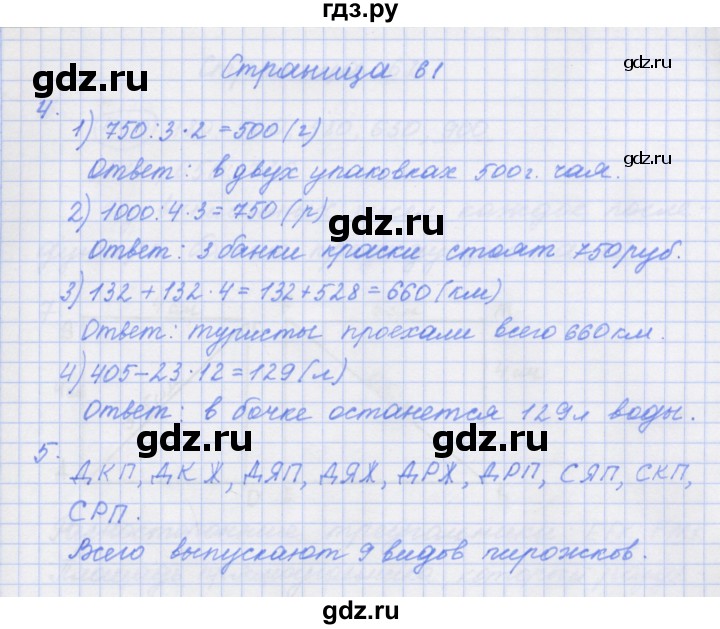 гдз.ру
Страница 61
gdz.ru
4.
1) 750:3·2=500(г)
gdz.ru
Ответ: в двух упаковках 500г. чая.
2) 1000:4·3=750(р)
gdz.ru
Ответ: 3 банки краски стоят 750руб.
3) 132+132·4=132+528=660(км)
Ответ: туристы проехали всего 660км.
4) 405-23·12=129(л)
Ответ: в бочке останется 129л воды.
gdz.ru
gdz.ru
5.
ДКП, ДКХ, ДЯП, ДЯХ, ДРХ, ДРП, СЯП, СКП,
СРП.
Всего выпускают 9 видов пирожков.
gdz.ru